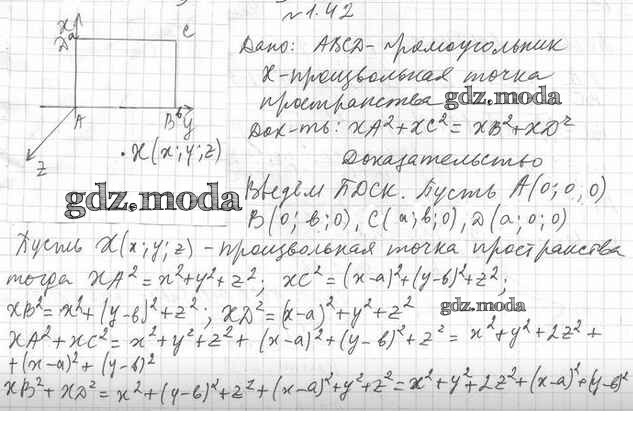 №1.42
Дано: ABCD - прямоугольник
X - произвольная точка
пространства
gdz.moda
Док-ть: XA²+XC² = XB²+XD²
Доказательство
Введём ПДСК. Пусть A(0;0,0)
B(0; в;0), C(a;в;0), D(a;0;0)
x
D a
C
A
B в y
z
X(x;y;z)
gdz.moda
Пусть X(x;y;z) - произвольная точка пространства
тогда XA² = x²+y²+z²; XC² = (x-a)²+(y-в)²+z²;
XB² = x²+(y-в)²+z²; XD² = (x-a)²+y²+z²
gdz.moda
XA²+XC² = x²+y²+z²+(x-a)²+(y-в)²+z² = x²+y²+2z²+
+(x-a)²+(y-в)²
XB²+XD² = x²+(y-в)²+z²+(x-a)²+y²+z² = x²+y²+2z²+(x-a)²+(y-в)²